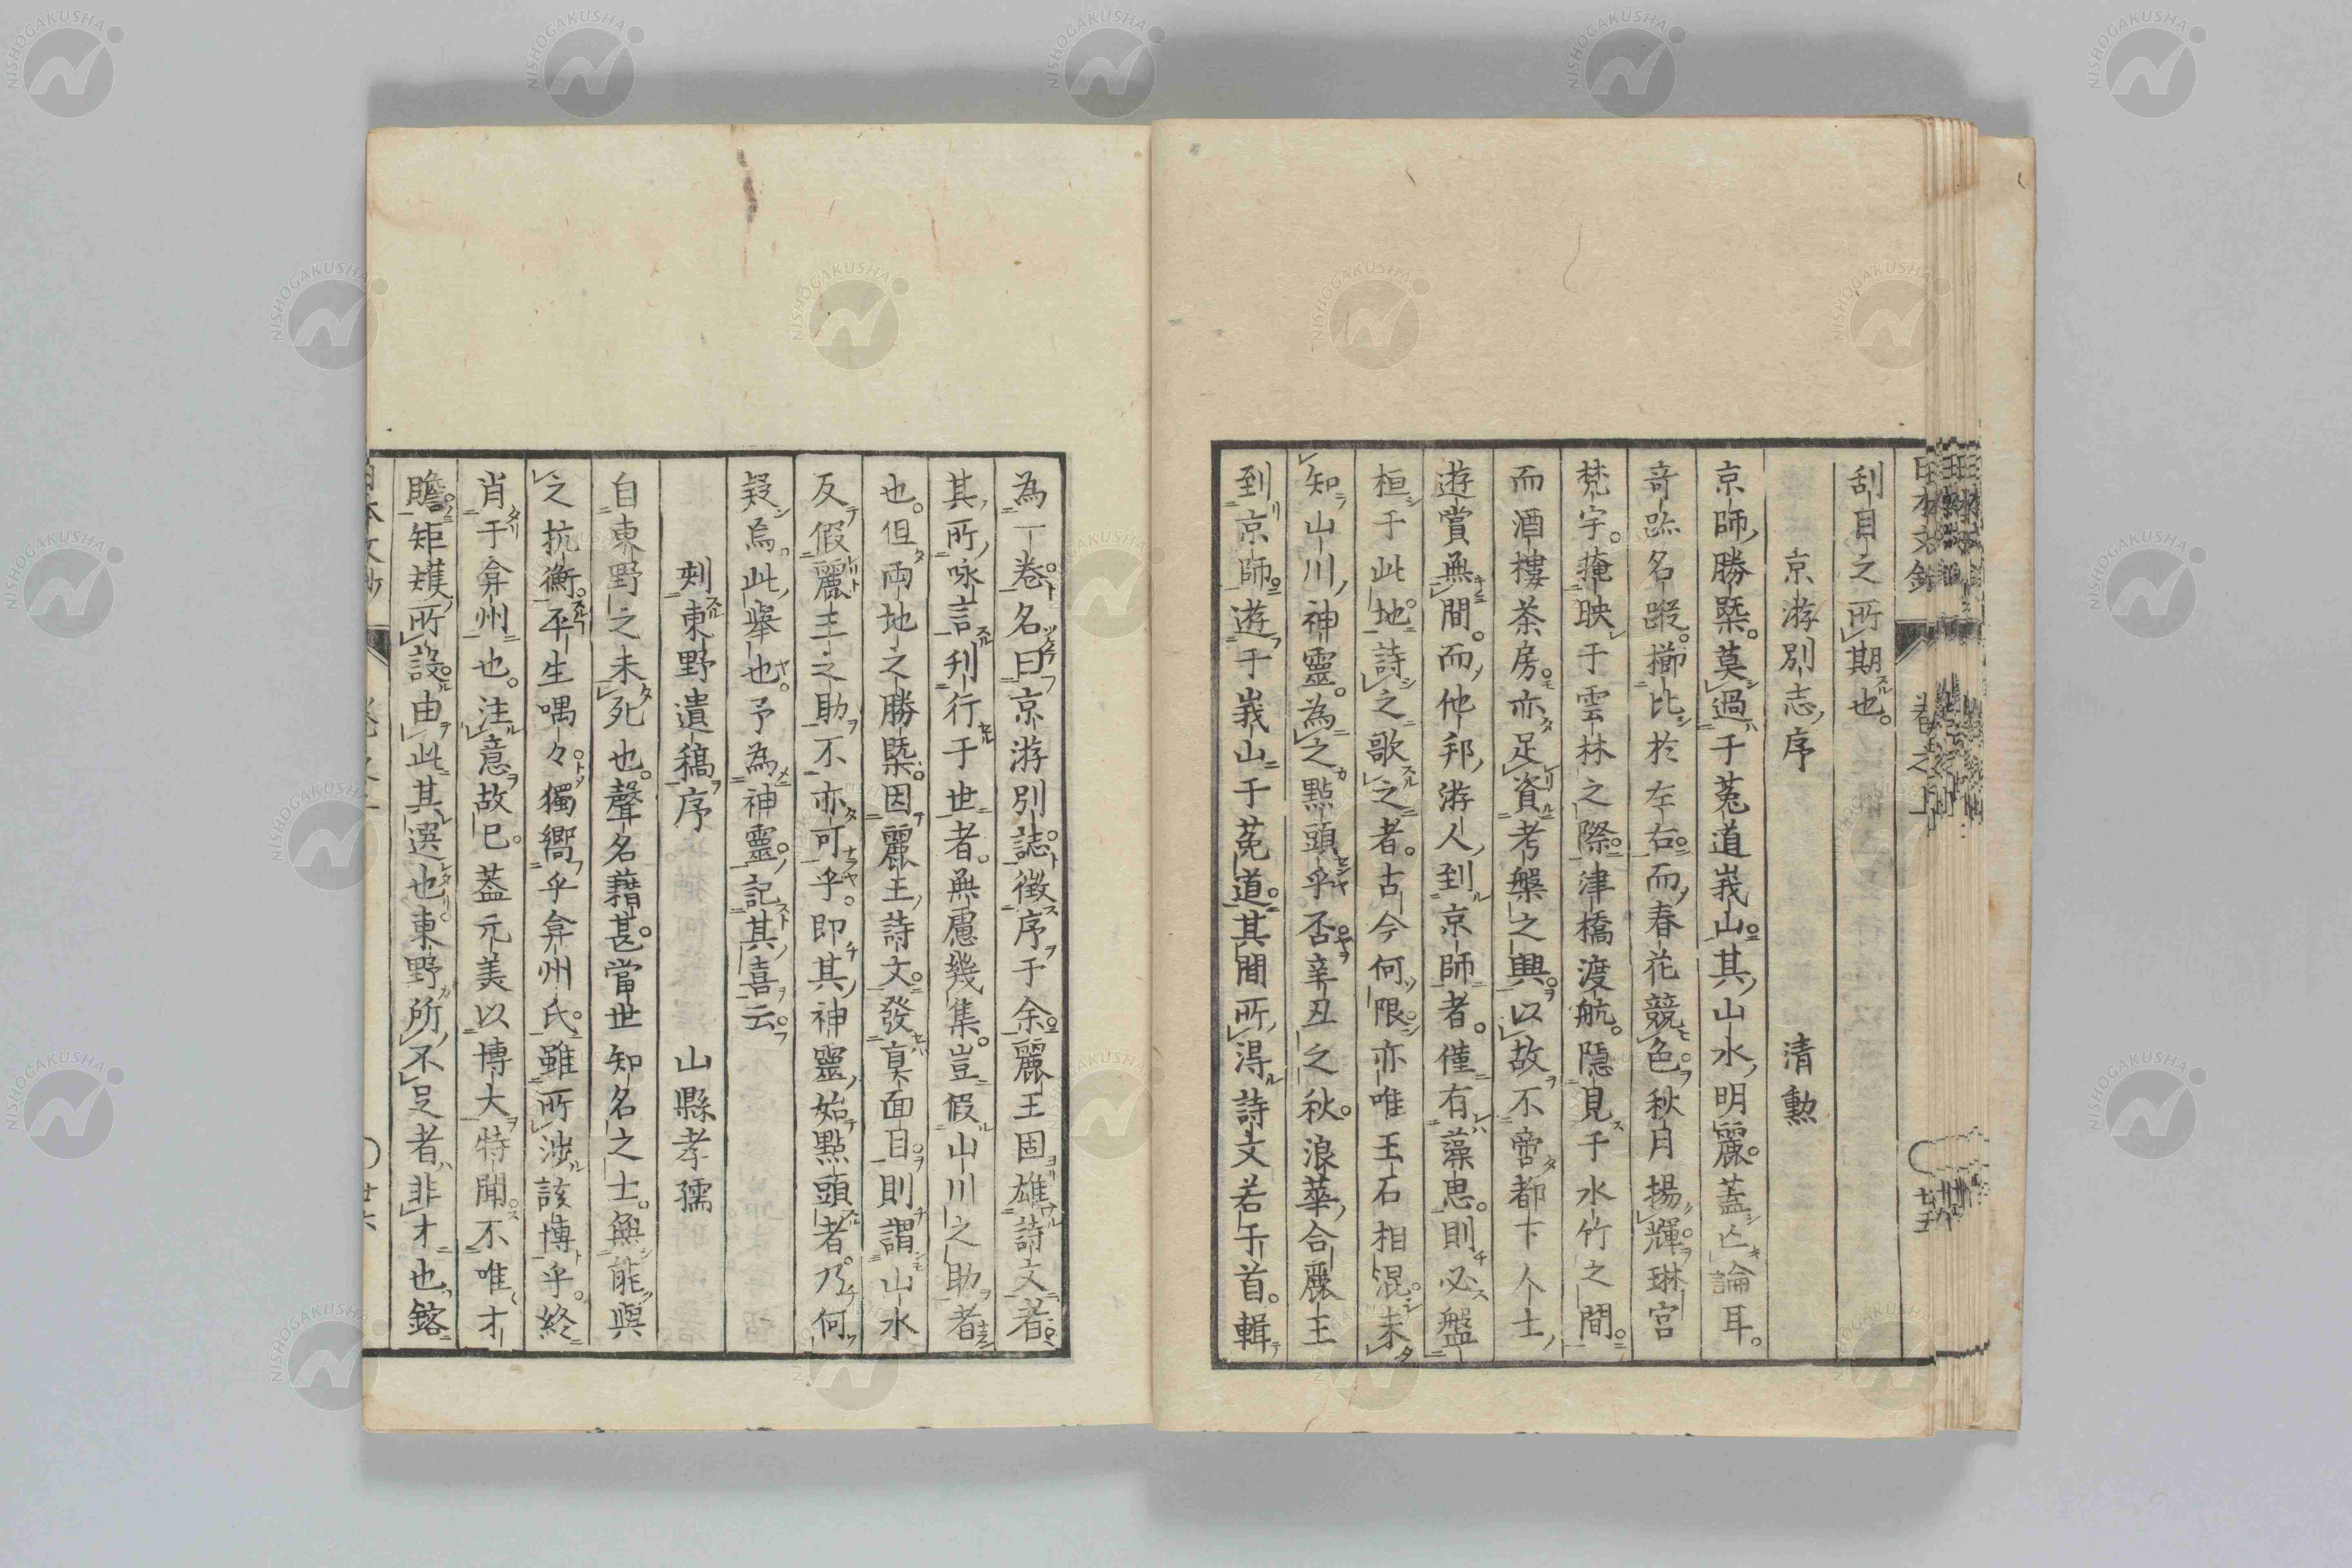 刮目之所期也。
京游別志序 清勲
京師勝槩。莫過于菟道峩山。其山水明麗。蓋亡論耳。
竒跡名蹤。擳比於左右。而春花競色。秋月揚輝。琳宮
梵宇。掩映于雲林之際。津橋渡航。隠見于水竹之間。
而酒樓茶房。亦足資考槃之興。以故不啻都下人士
遊賞無間。而他邦游人到京師者。僅有藻思。則必盤
桓于此地。詩之歌之者。古今何限。亦唯玉石相混。未
知山川神靈。為之點頭乎否。辛丑之秋。浪華合麗王
到京師。遊于峩山于菟道。其間所得詩文若干首。輯
為一卷。名曰京游別誌。徴序于余。麗王固雄詩文者。
其所咏言。刊行于世者。無慮幾集。豈假山川之助者
也。但両地之勝槩。因麗王詩文。發真面目。則謂山水
反假麗王之助。不亦可乎。即其神靈始點頭者。乃何
疑焉。此舉也。予為神靈。記其喜云。
刻東野遺稿序 山縣孝孺
自東野之未死也。聲名藉甚。當世知名之士。無能與
之抗衡。平生喁々。獨嚮乎弇州氏。雖所渉該博乎。終
肖于弇州也。注意故已。蓋元美以博大特聞。不唯才
贍矩矱所設由。此其選也。東野所不足者。非才也。鎔
日本文鈔 卷之上 廿五